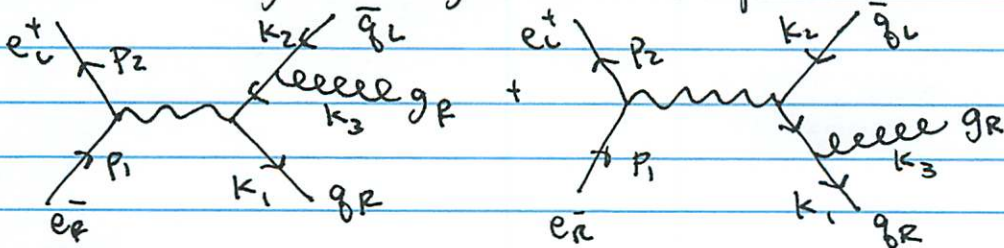 e⁺_L p₂ k₂ q̄_L g_R k₃ p₁ k₁ q_R e⁻_R
+
e⁺_L p₂ k₂ q̄_L g_R k₃ p₁ k₁ q_R e⁻_R